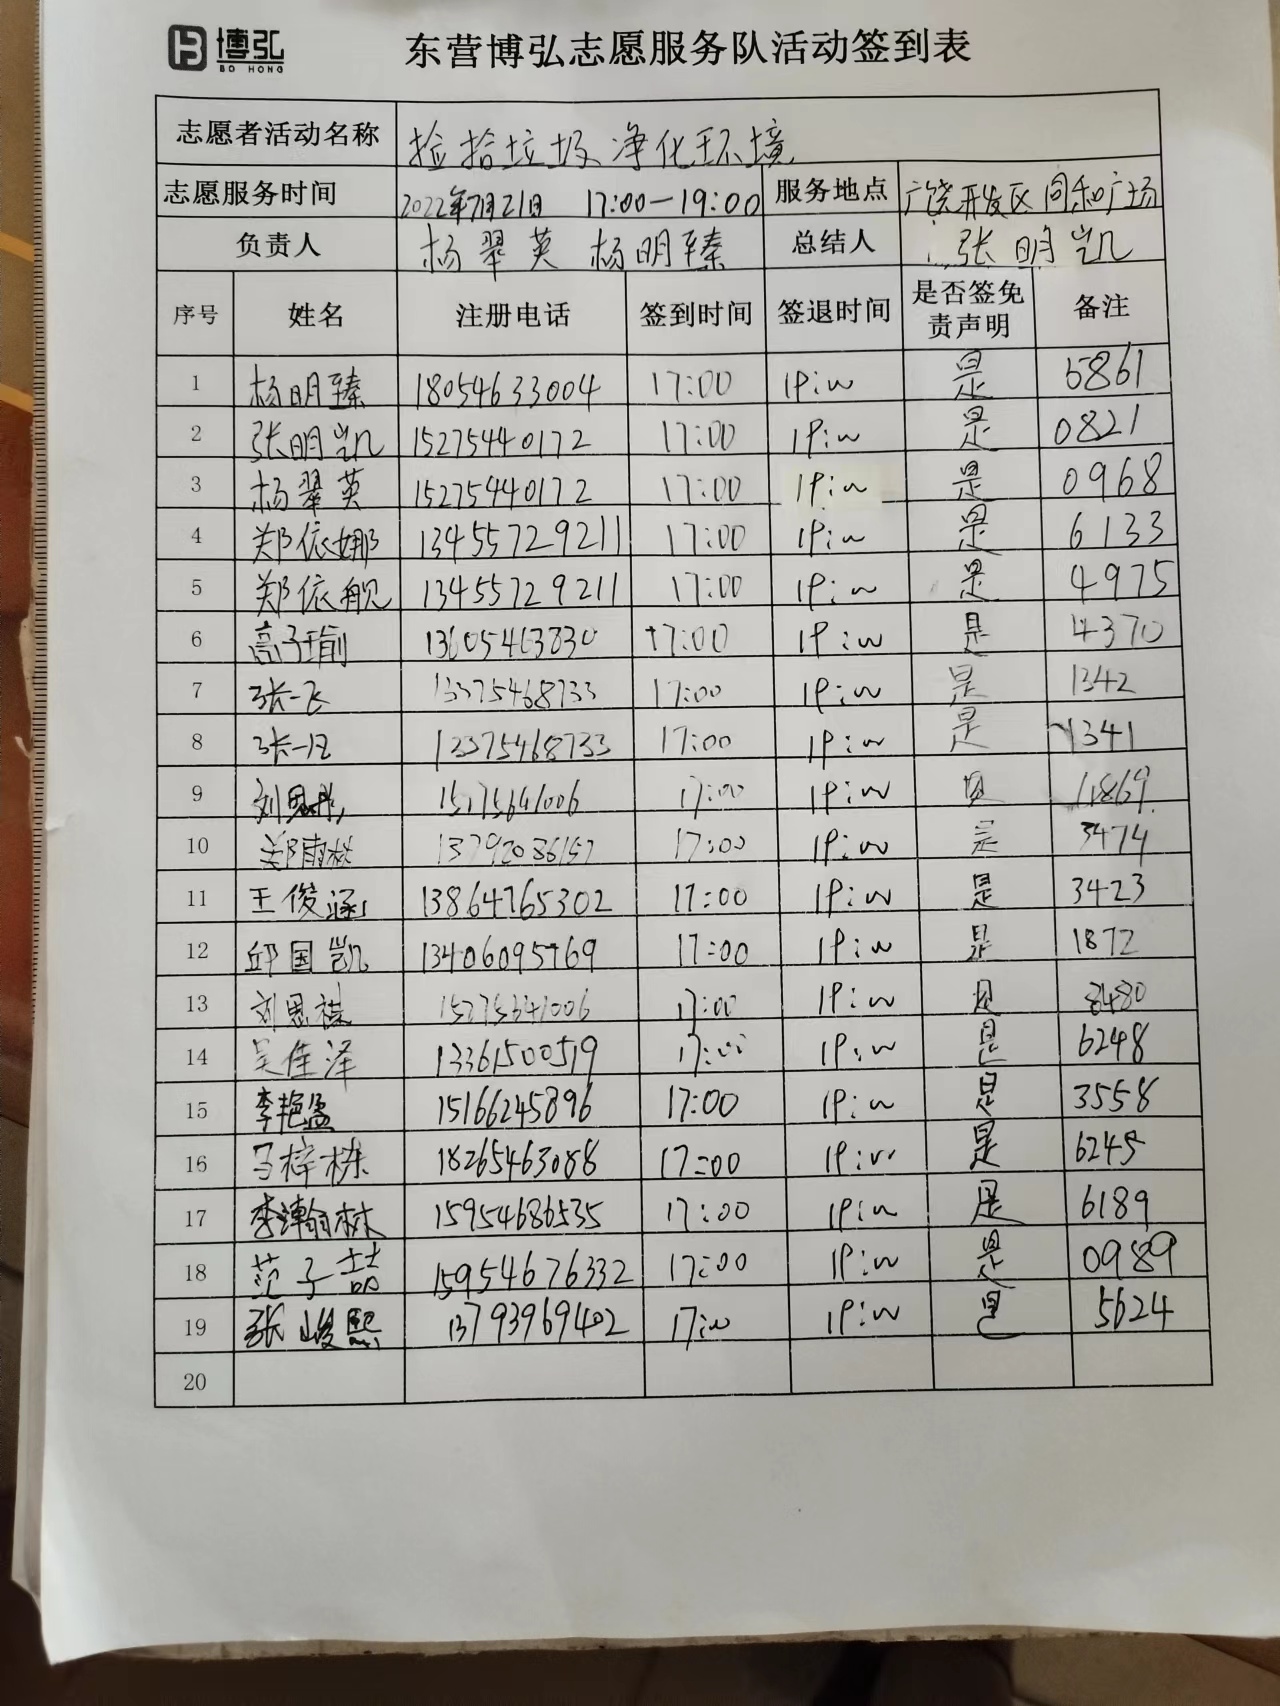 博弘
BO HONG
东营博弘志愿服务队活动签到表
志愿者活动名称 捡拾垃圾净化环境
志愿服务时间 2022年7月21日 17:00—19:00 服务地点 广饶开发区同和广场
负责人 杨翠英 杨明臻 总结人 张明凯
序号 姓名 注册电话 签到时间 签退时间 是否签免责声明 备注
1 杨明臻 18054633004 17:00 19:00 是 5861
2 张明凯 15275440172 17:00 19:00 是 0821
3 杨翠英 15275440172 17:00 19:00 是 0968
4 郑依娜 13455729211 17:00 19:00 是 6133
5 郑依舰 13455729211 17:00 19:00 是 4975
6 高子瑜 13605463830 17:00 19:00 是 4370
7 张一飞 13375468733 17:00 19:00 是 1342
8 张一 13375468733 17:00 19:00 是 1341
9 刘思彤 17:00 19:00 是
10 郑雨林 17:00 19:00 是 3474
11 王俊涵 13864765302 17:00 19:00 是 3423
12 邱国凯 17:00 19:00 是 1872
13 刘思祺 17:00 19:00 是 8480
14 吴佳泽 13361500519 17:00 19:00 是 6248
15 李艳孟 15166245896 17:00 19:00 是 3558
16 马梓栋 18265463088 17:00 19:00 是
17 李瀚林 15954686535 17:00 19:00 是 6189
18 范子喆 15954676332 17:00 19:00 是 0989
19 张峻熙 13793969402 17:00 19:00 是 5624
20